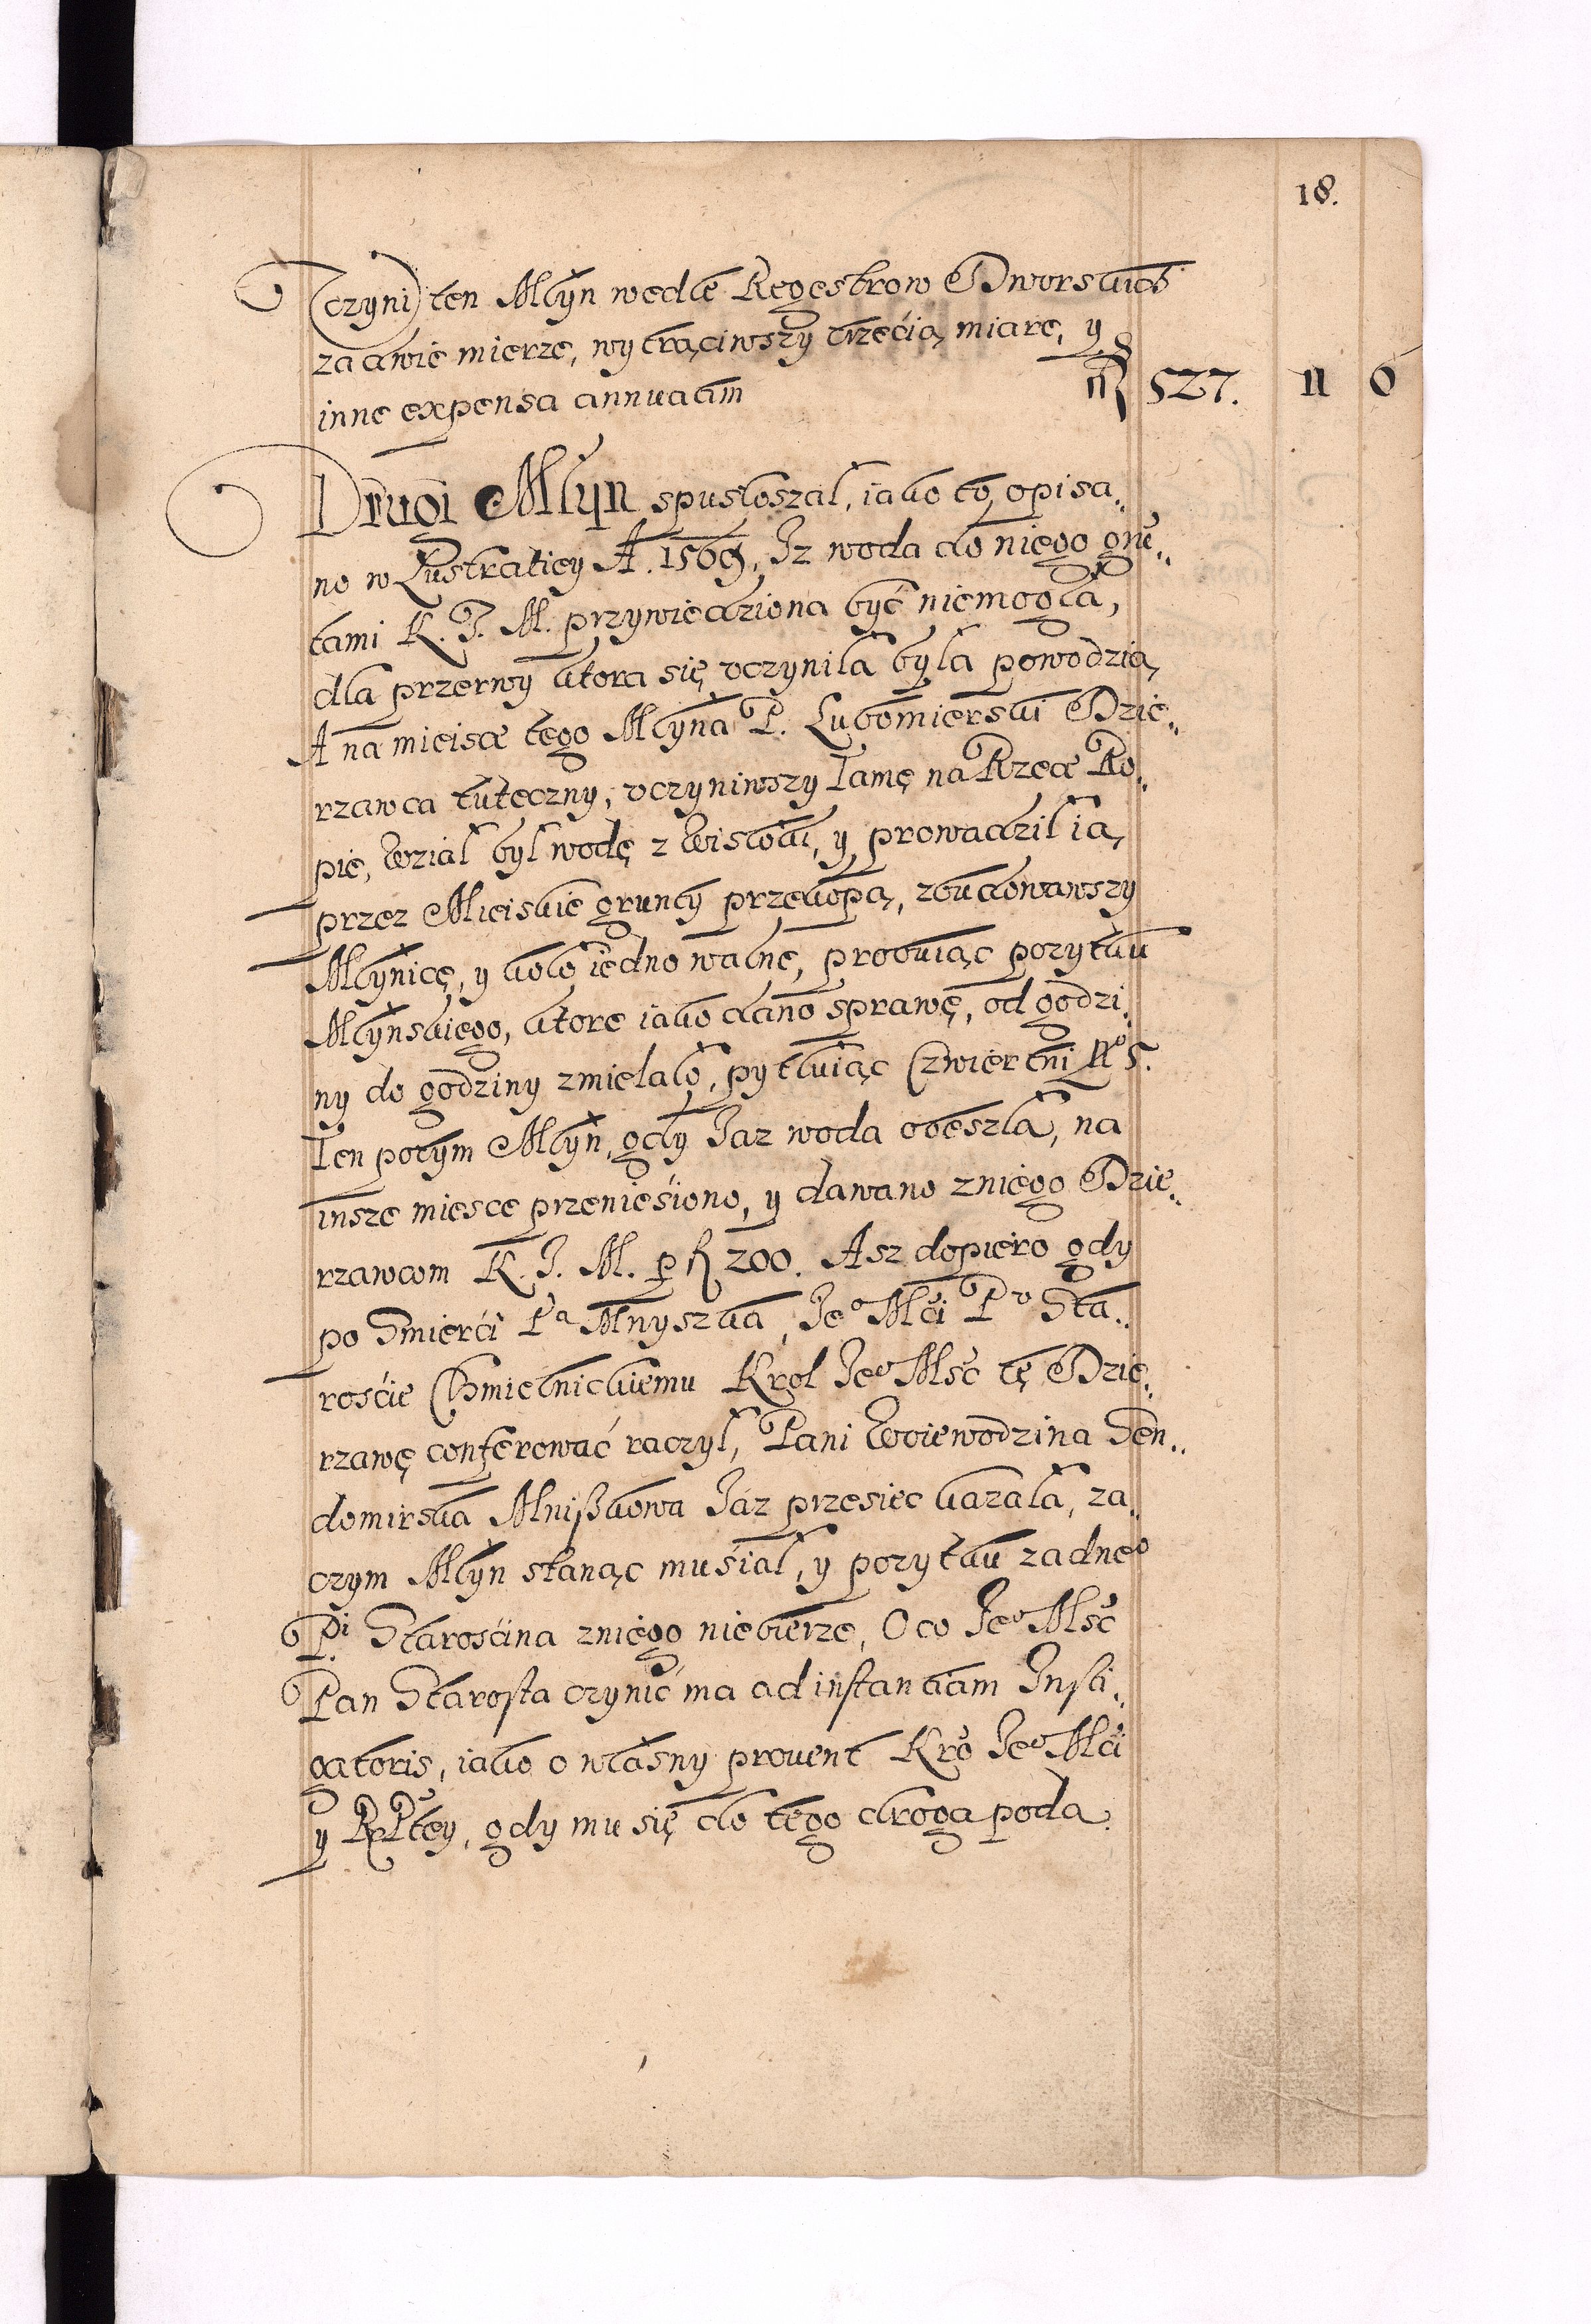 18.
Czyni ten Młyn wedle Regestrow Dworskich
za dwie mierze, wytrąciwszy trzecią miarę, y
inne expensa annuatim fl 527. 11 6
Drugi Młyn spustoszał, iako to opisa„
no w Lustratiey A. 1569, Iz woda do niego gru„
tami K. J. M. przywiedziona być niemogła,
dla przerwy ktora się vczyniła była powodzią,
A na mieisce tego Młyna P. Lubomierski Dzie„
rzawca tuteczny, vczyniwszy Tamę na Rzece Ro„
pie, Wział był wodę z Wisłoki, y prowadził ią,
przez Mieiskie grunty przekopą, zbudowawszy
Młynicę, y koło iedno walne, probuiąc pozytku
Młynskiego, ktore iako dano sprawę, od godzi„
ny do godziny zmielało, pytluiąc Czwiertni No 5.
Ten potym Młyn, gdy Jaz woda obeszła, na
insze miesce przeniesiono, y dawano zniego Dzie„
rzawcom K. J. M. p fl 200. Asz dopiero gdy
po Smierći Pa Mnyszka, Jeo Mći Pu Sta„
rosćie Chmielnickiemu Krol Jeo Mść tę Dzie„
rzawę conferować raczył, Pani Woiewodzina Sen„
domirska Mnißkowa Jaz przesiec kazała, za„
czym Młyn stanąc musiał, y pozytku zadneo
Pi Starosćina zniego niebierze, O co Jeo Mść
Pan Starosta czynić ma ad instantiam Insti„
gatoris, iako o własny prouent Kro Jeo Mći
y RPltey, gdy mu się do tego droga poda.